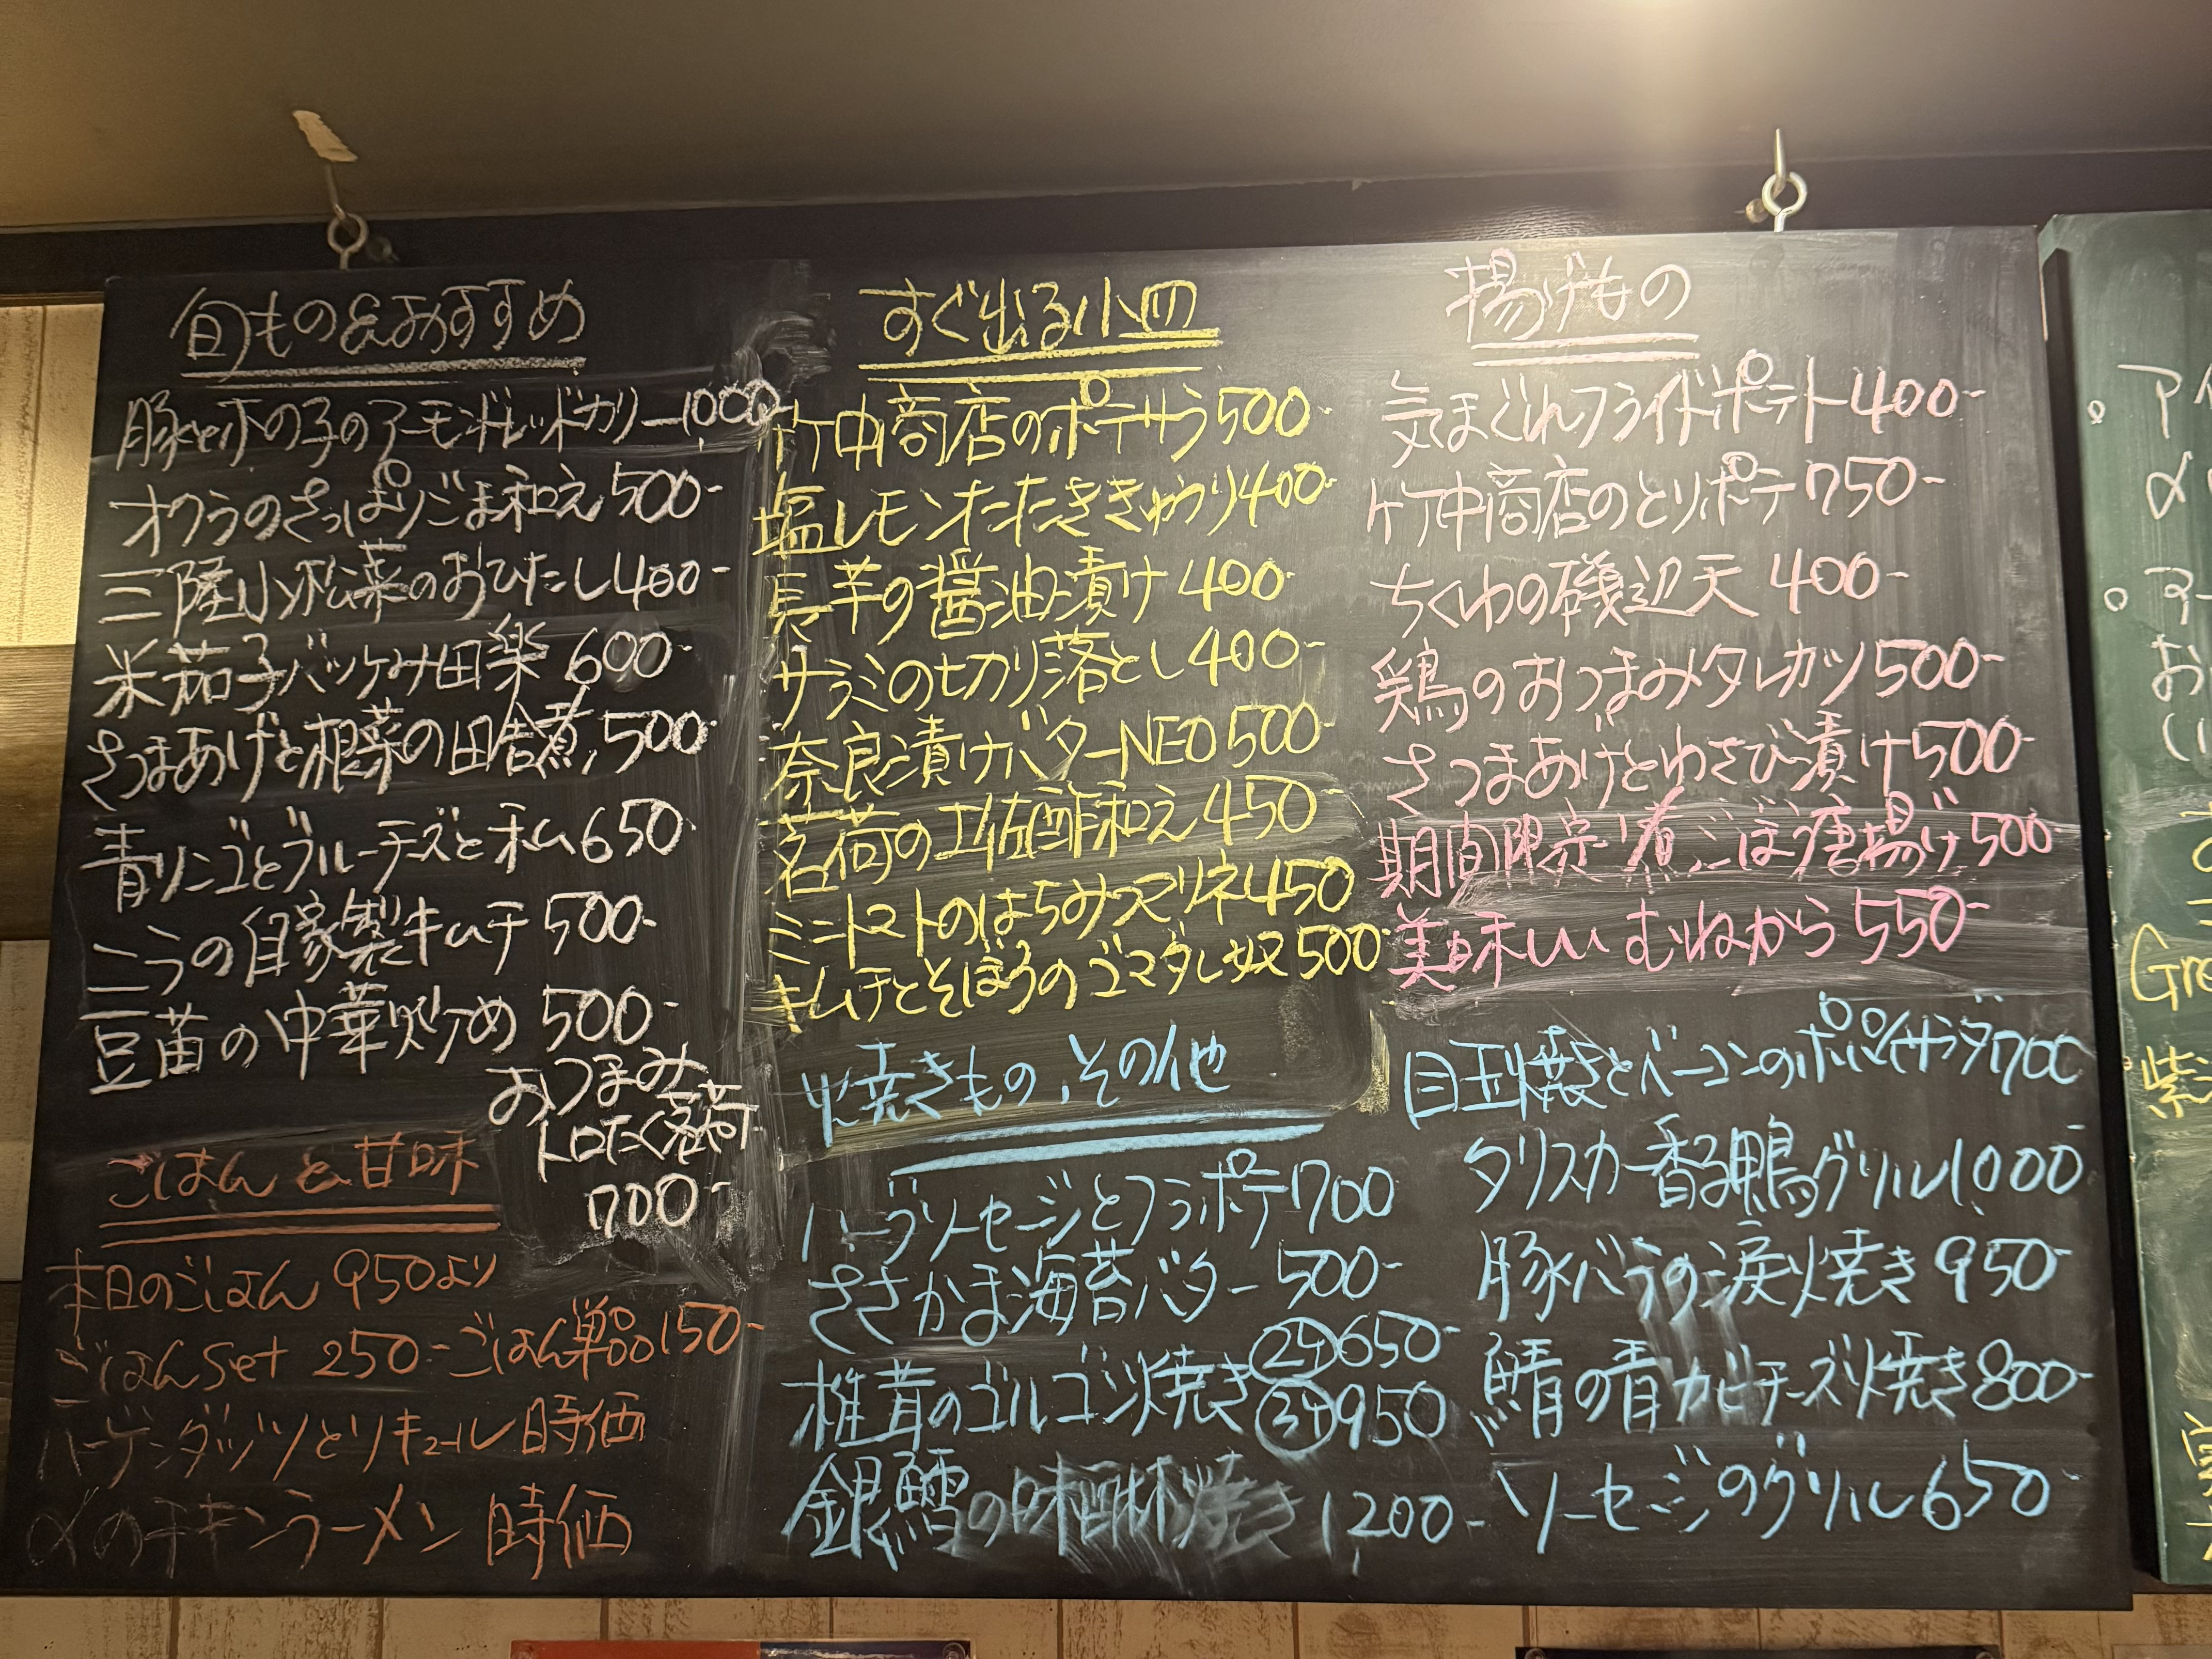 旬もの&おすすめ
豚と木の子のアーモンドレッドカリー1000
オクラのさっぱりごま和え 500-
三陸小松菜のおひたし 400-
米茄子バッケみ田楽 600-
さつまあげと根菜の田舎煮 500-
青リンゴとブルーチーズと私 650-
ニラの自家製キムチ 500-
豆苗の中華炒め 500-
おつまみ
トロたく茗荷
700-
ごはんと甘味
本日のごはん 950より
ごはんSet 250- ごはん単品150-
ハーゲンダッツとリキュール 時価
〆のチキンラーメン 時価
すぐ出る小皿
竹中商店のポテサラ 500-
塩レモンたたききゅうり 400-
長芋の醤油漬け 400-
サラミの切り落とし 400-
奈良漬けバターNEO 500-
茗荷の土佐酢和え 450-
ミニトマトのはちみつマリネ 450
キムチとそぼろのゴマダレ奴 500-
焼きもの、その他
ハーブソーセージとフラポテ 700
ささかま海苔バター 500-
椎茸のゴルゴンゾ焼き 2ケ 650-
3ケ 950
銀鱈の味醂焼き 1200-
揚げもの
気まぐれフライドポテト 400-
竹中商店のとりポテ 750-
ちくわの磯辺天 400-
鶏のおつまみタレカツ 500-
さつまあげとわさび漬け 500-
期間限定 煮ごぼ唐揚げ 500-
美味しい むねから 550-
目玉焼きとベーコンのポパイサラダ 700
タリスカー香る鴨グリル 1000-
豚バラの炭火焼き 950-
鯖の青カビチーズ焼き 800-
ソーセージのグリル 650-